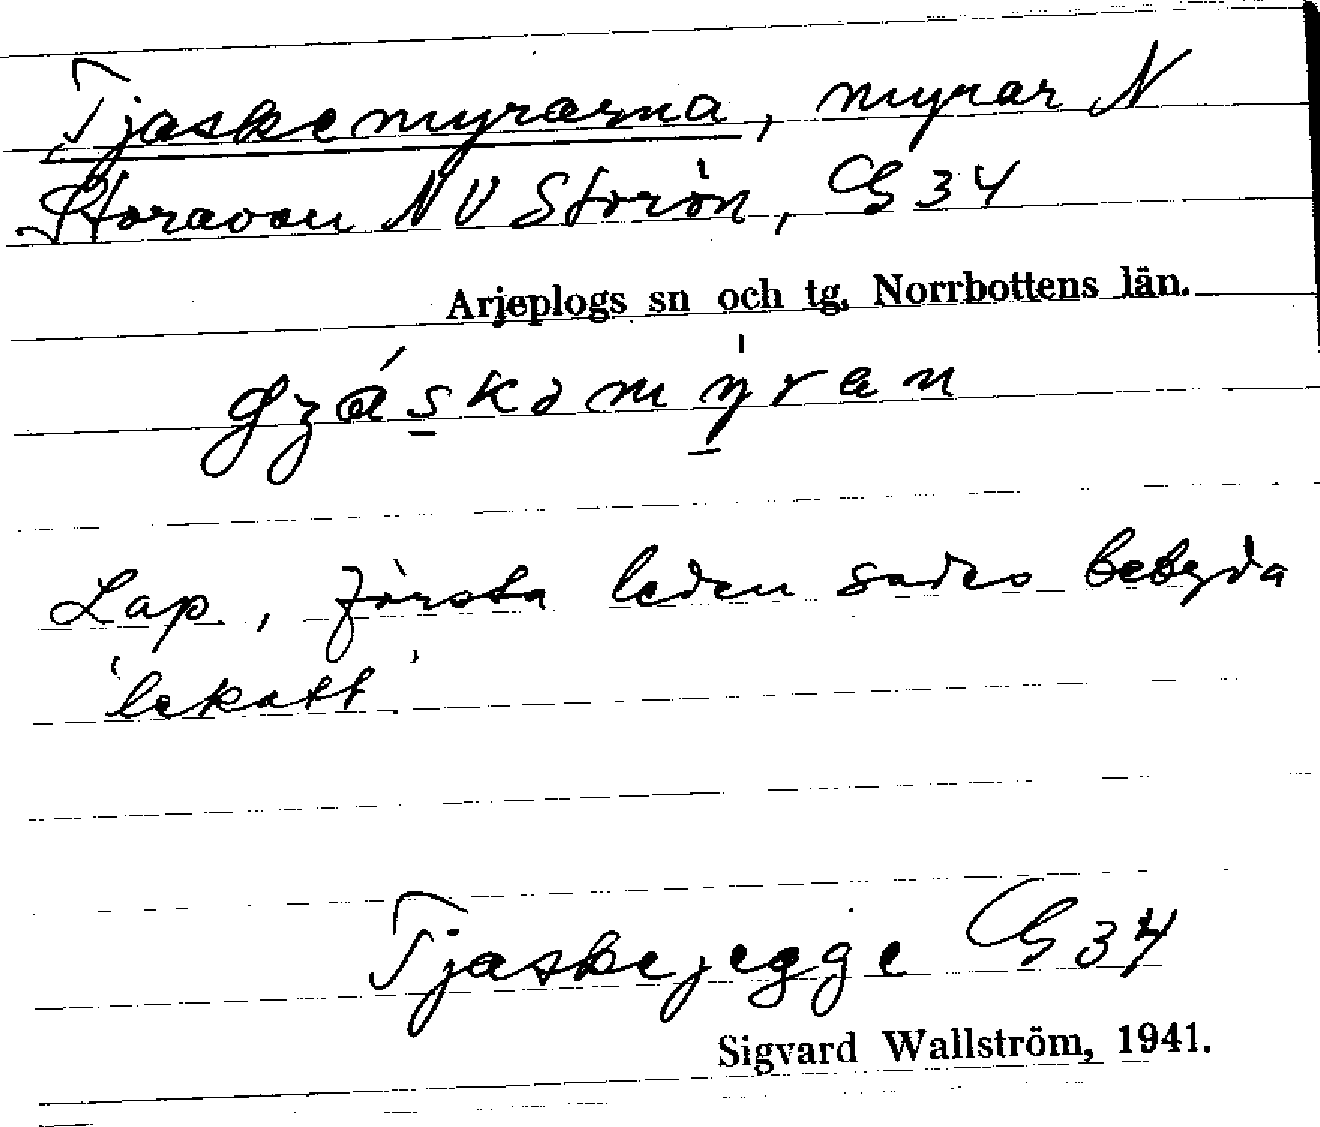 Tjaskemyrarna, myrar N
Storavan NV Storön, GS 34
Arjeplogs sn och tg, Norrbottens län.
Lap, första leden sades betyda
'lekatt'
Tjaskejegge GS 34
Sigvard Wallström, 1941.